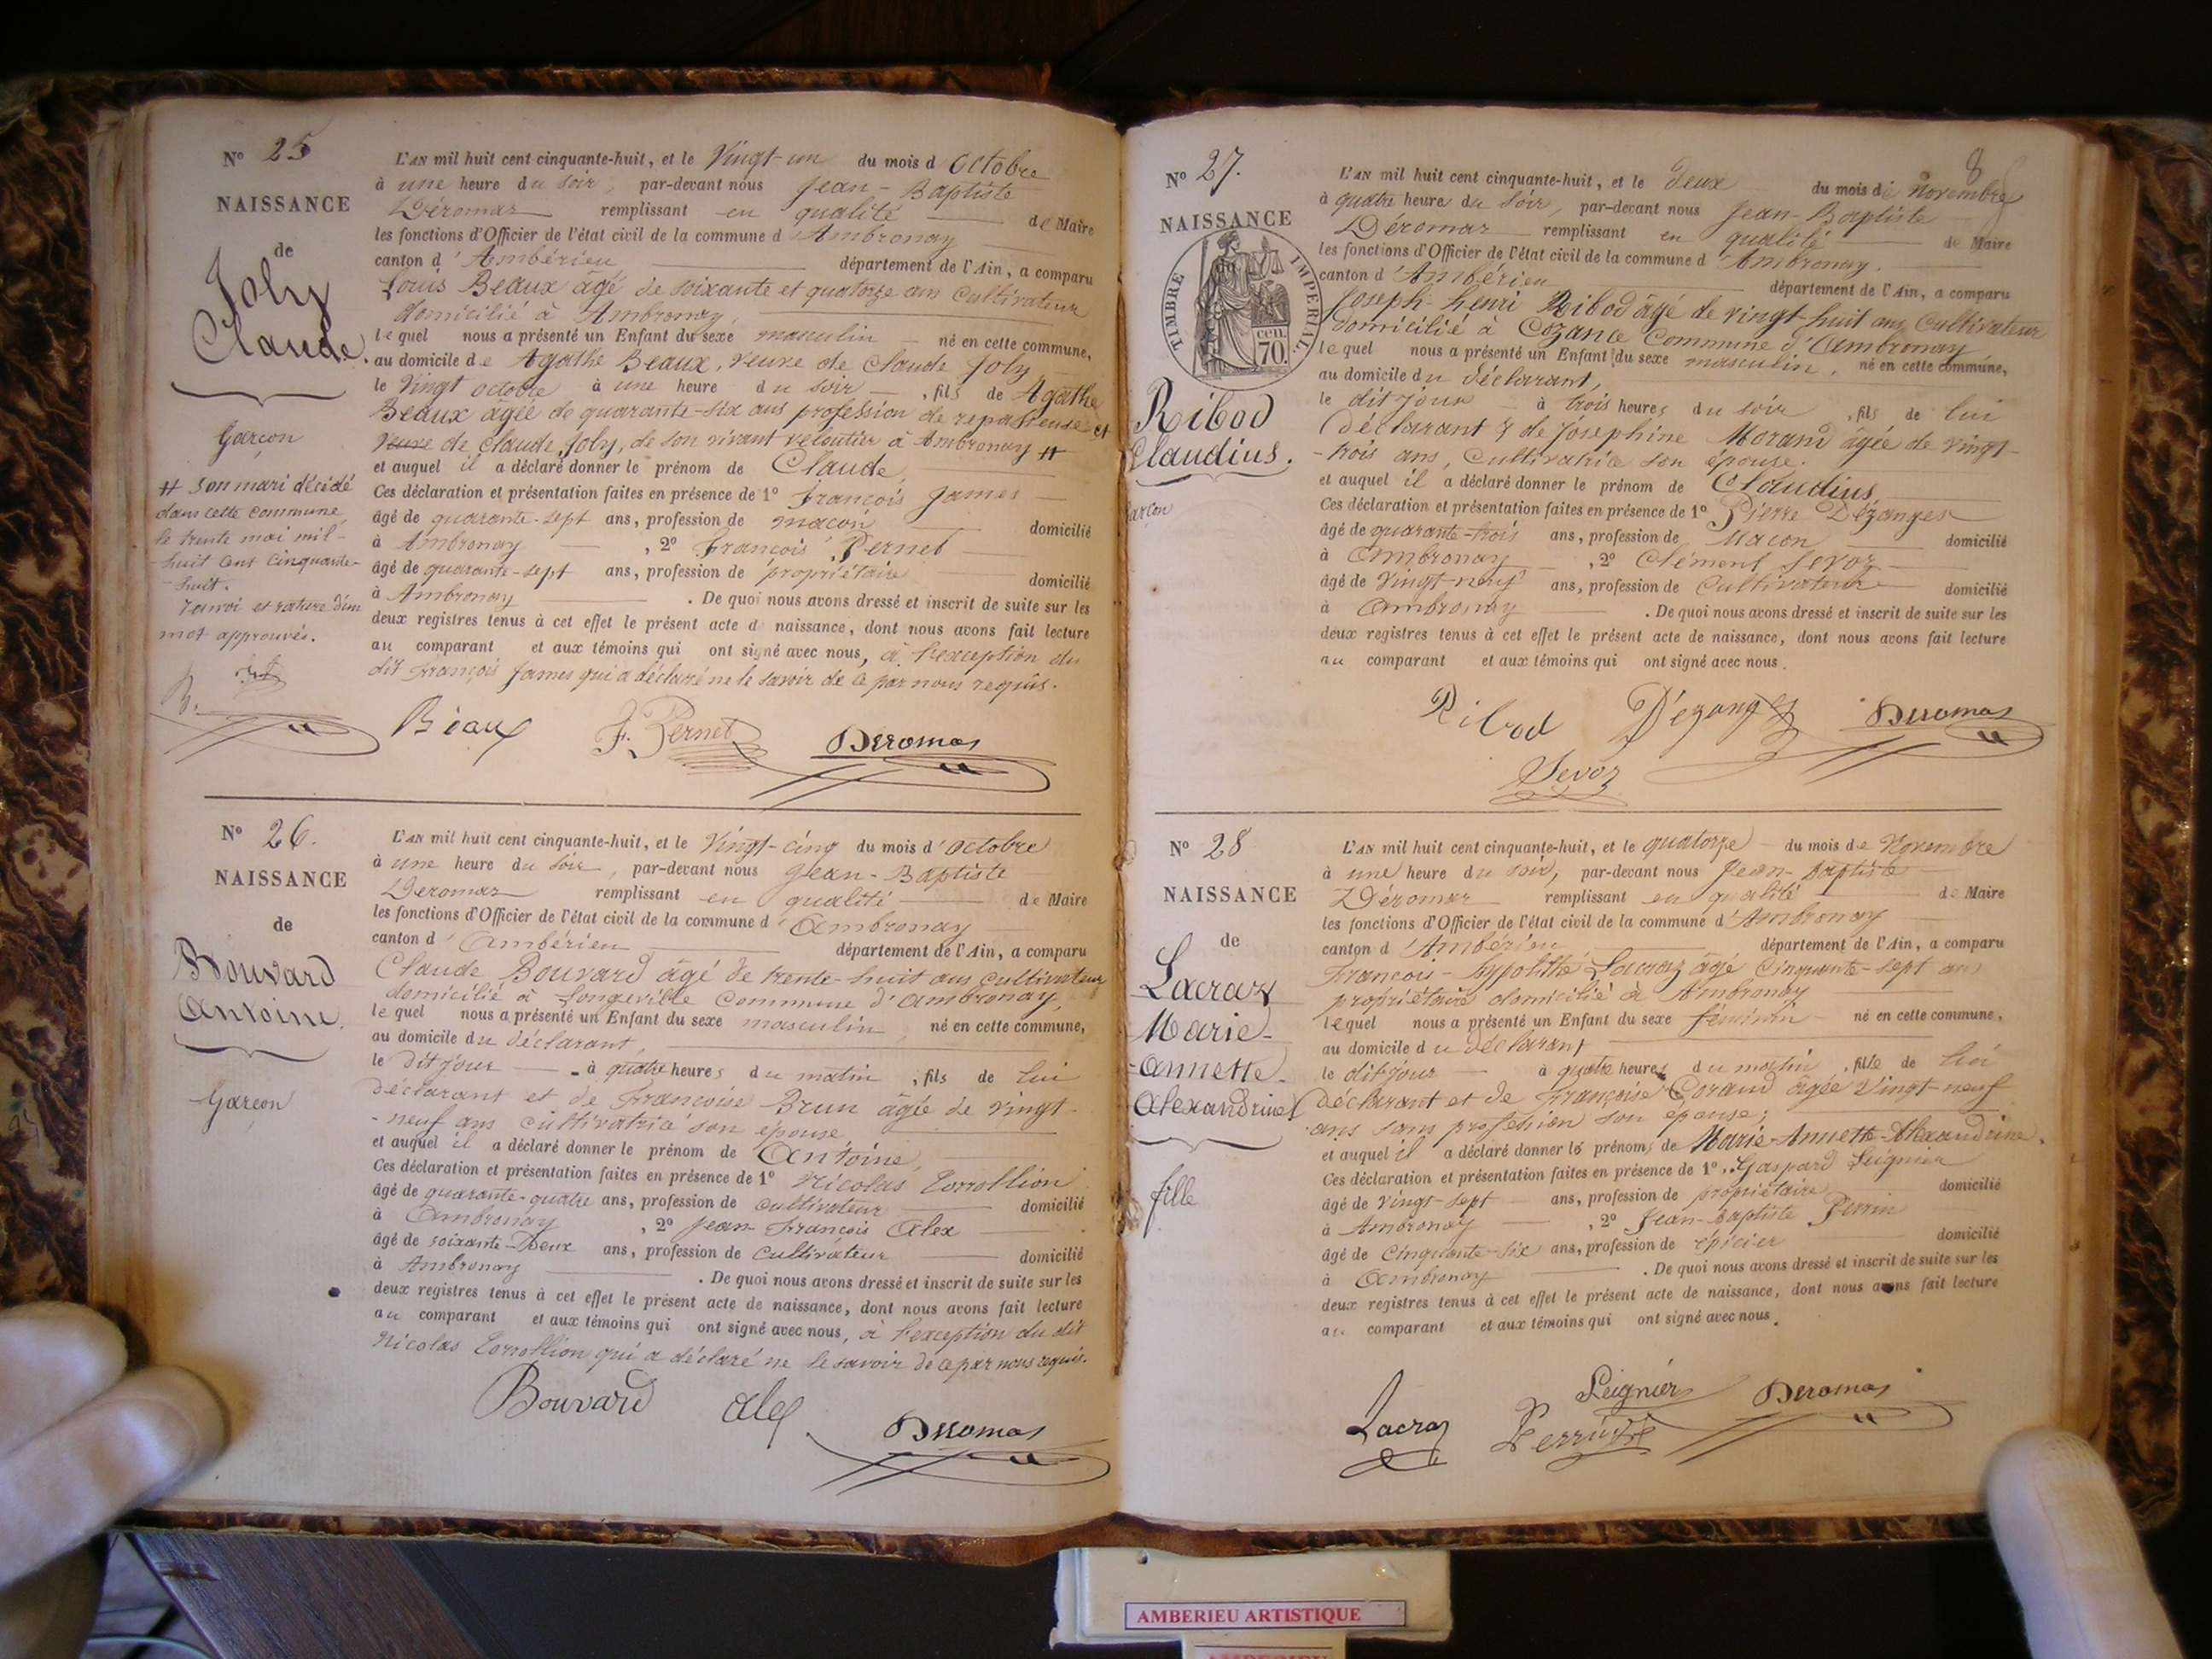 N° 25
NAISSANCE
de
Joly
Claude.
Garçon
# son mari décédé
dans cette commune
le trente mai mil-
huit cent cinquante-
-huit.
renvoi et rature d'un
mot approuvés.
L'AN mil huit cent cinquante-huit, et le Vingt-un du mois d'Octobre
à une heure du soir, par-devant nous Jean-Baptiste
Déromas remplissant en qualité de Maire
les fonctions d'Officier de l'état civil de la commune d'Ambronay
canton d'Ambérieu département de l'Ain, a comparu
Louis Beaux âgé de soixante et quatorze ans cultivateur
domicilié à Ambronay,
lequel nous a présenté un Enfant du sexe masculin né en cette commune,
au domicile de Agathe Beaux, veuve de Claude Joly
le Vingt octobre à une heure du soir, fils de Agathe
Beaux âgée de quarante-six ans profession de repasseuse et
veuve de Claude Joly, de son vivant veloutier à Ambronay #
et auquel il a déclaré donner le prénom de Claude,
Ces déclaration et présentation faites en présence de 1° François James
âgé de quarante-sept ans, profession de maçon domicilié
à Ambronay, 2° François Pernet
âgé de quarante-sept ans, profession de propriétaire domicilié
à Ambronay. De quoi nous avons dressé et inscrit de suite sur les
deux registres tenus à cet effet le présent acte d naissance, dont nous avons fait lecture
au comparant et aux témoins qui ont signé avec nous, à l'exception du
dit François James qui a déclaré ne le savoir de ce par nous requis.
Beaux F. Pernet Deromas
N° 26.
NAISSANCE
de
Bouvard
Antoine.
Garçon
L'AN mil huit cent cinquante-huit, et le Vingt-cinq du mois d'Octobre
à une heure du soir, par-devant nous Jean-Baptiste
Déromas remplissant en qualité de Maire
les fonctions d'Officier de l'état civil de la commune d'Ambronay
canton d'Ambérieu département de l'Ain, a comparu
Claude Bouvard âgé de trente-huit ans cultivateur
domicilié à Longeville Commune d'Ambronay,
lequel nous a présenté un Enfant du sexe masculin, né en cette commune,
au domicile du déclarant,
le dit jour à quatre heures du matin, fils de lui
déclarant et de Françoise Brun âgée de vingt-
-neuf ans cultivatrice son épouse
et auquel il a déclaré donner le prénom de Antoine,
Ces déclaration et présentation faites en présence de 1° Nicolas
âgé de quarante-quatre ans, profession de cultivateur domicilié
à Ambronay, 2° Jean-François Alex
âgé de soixante-Deux ans, profession de Cultivateur domicilié
à Ambronay. De quoi nous avons dressé et inscrit de suite sur les
deux registres tenus à cet effet le présent acte de naissance, dont nous avons fait lecture
au comparant et aux témoins qui ont signé avec nous, à l'exception du dit
Nicolas qui a déclaré ne le savoir de ce par nous requis.
Bouvard Alex
Deromas
8
N° 27.
NAISSANCE
TIMBRE IMPERIAL
cen.
70.
Ribod
Claudius.
garçon
L'AN mil huit cent cinquante-huit, et le Deux du mois de Novembre
à quatre heure du soir, par-devant nous Jean-Baptiste
Déromas remplissant en qualité de Maire
les fonctions d'Officier de l'état civil de la commune d'Ambronay.
canton d'Ambérieu département de l'Ain, a comparu
Joseph-henri Ribod âgé de vingt huit ans Cultivateur
domicilié à Cozance Commune d'Ambronay
lequel nous a présenté un Enfant du sexe masculin, né en cette commune,
au domicile du déclarant,
le dit jour à trois heures du soir, fils de lui
déclarant & de Joséphine Morand âgée de vingt-
-trois ans, Cultivatrice son épouse.
et auquel il a déclaré donner le prénom de Claudius
Ces déclaration et présentation faites en présence de 1° Pierre Dézanges
âgé de quarante-trois ans, profession de Maçon domicilié
à Ambronay, 2° Clément Sevoz
âgé de Vingt-neuf ans, profession de Cultivateur domicilié
à Ambronay. De quoi nous avons dressé et inscrit de suite sur les
deux registres tenus à cet effet le présent acte de naissance, dont nous avons fait lecture
au comparant et aux témoins qui ont signé avec nous.
Ribod Dézanges Deromas
Sevoz
N° 28
NAISSANCE
de
Lacraz
Marie-
-Annette-
Alexandrine
fille
L'AN mil huit cent cinquante-huit, et le quatorze du mois de Novembre
à une heure du soir, par-devant nous Jean-Baptiste
Déromas remplissant en qualité de Maire
les fonctions d'Officier de l'état civil de la commune d'Ambronay
canton d'Ambérieu département de l'Ain, a comparu
François-hypolithe Lacraz âgé Cinquante-sept ans
propriétaire domicilié à Ambronay
lequel nous a présenté un Enfant du sexe féminin né en cette commune,
au domicile du déclarant
le dit jour à quatre heures du matin, fille de lui
déclarant et de Françoise Corand âgée Vingt-neuf
ans sans profession son épouse;
et auquel il a déclaré donner les prénoms de Marie-Annette-Alexandrine.
Ces déclaration et présentation faites en présence de 1°. Gaspard Leignier
âgé de vingt-sept ans, profession de propriétaire domicilié
à Ambronay, 2° Jean-Baptiste Perrin
âgé de Cinquante-six ans, profession de épicier domicilié
à Ambronay. De quoi nous avons dressé et inscrit de suite sur les
deux registres tenus à cet effet le présent acte de naissance, dont nous avons fait lecture
au comparant et aux témoins qui ont signé avec nous.
Leignier Deromas
Lacraz Perrin
AMBERIEU ARTISTIQUE
AMBERIEU